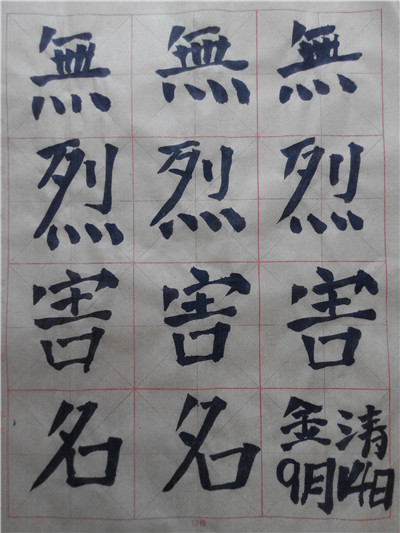 無無無
烈烈烈
害害害
名名金清
9月14日